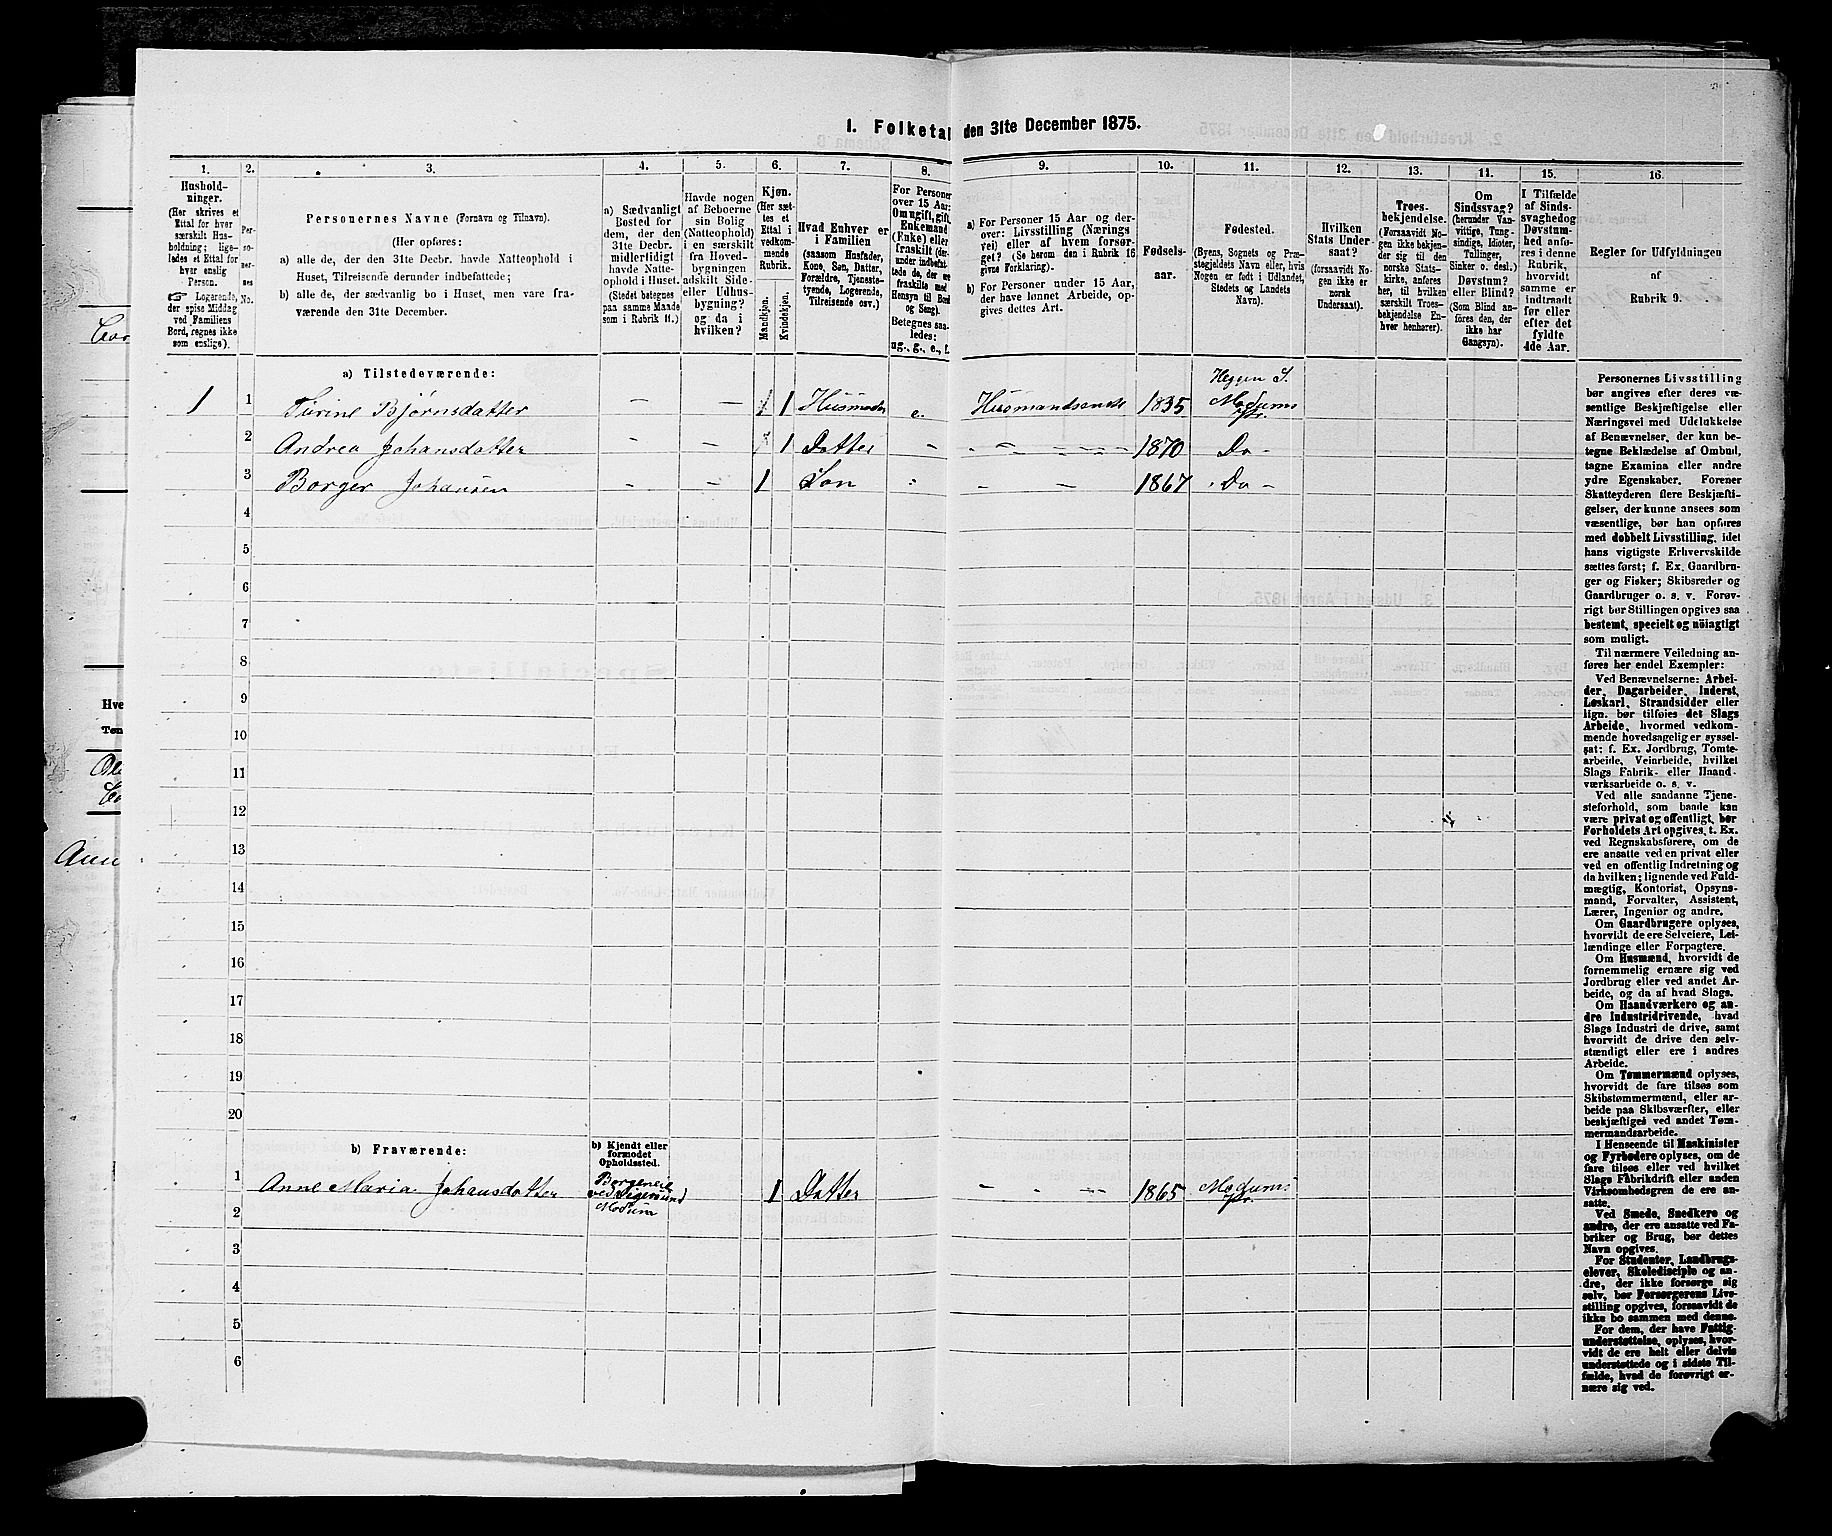 1. Folketal den 31te December 1875.
1. 2. 3. 4. 5. 6. 7. 8. 9. 10. 11. 12. 13. 14. 15. 16.
Hushold-
ninger.
(Her skrives et
Ettal for hver
særskilt Hus-
holdning; lige-
ledes et Ettal for
hver enslig
Person.
☞ Logerende,
der spise Middag
ved Familiens
Bord, regnes ikke
som enslige).
Per-
so-
ner-
nes
No.
Personernes Navne (Fornavn og Tilnavn).
(Her opføres:
a) alle de, der den 31te Decbr. havde Natteophold i
Huset, Tilreisende derunder indbefattede;
b) alle de, der sædvanlig bo i Huset, men vare fra-
værende den 31te December.
a) Sædvanligt
Bosted for
dem, der den
31te Decbr.
midlertidigt
havde Natte-
ophold i Huset.
(Stedet betegnes
paa samme Maade
som i Rubrik 11.)
Havde nogen
af Beboerne
sin Bolig
(Natteophold)
i en særskilt
fra Hoved-
bygningen
adskilt Side-
eller Udhus-
bygning?
og da i
hvilken?
Kjøn.
(Her sæt-
tes et
Ettal i
vedkom-
mende
Rubrik.
Mandkjøn.
Kvindekjøn.
Hvad Enhver er
i Familien
(saasom Husfader,
Kone, Søn, Datter,
Forældre, Tjeneste-
tyende, Logerende,
Tilreisende osv.)
For Personer
over 15 Aar:
Om ugift, gift,
Enkemand
(Enke) eller
fraskilt (der-
under indbefat-
tede de, der ere
fraskilte med
Hensyn til Bord
og Seng).
Betegnes saa-
ledes:
ug., g., e., f.
a) For Personer 15 Aar og der-
over: Livsstilling (Nærings
vei) eller af hvem forsør-
get? (Se herom den i Rubrik 16
givne Forklaring).
b) For Personer under 15 Aar,
der have lønnet Arbeide, op-
gives dettes Art.
Fødsels-
aar.
Fødested.
(Byens, Sognets og Præ-
stegjeldets Navn eller, hvis
Nogen er født i Udlandet,
Stedets og Landets
Navn).
Hvilken
Stats Under-
saat?
(forsaavidt No-
gen ikke er
norsk
Undersaat).
Troes-
bekjendelse.
(Forsaavidt No-
gen ikke bekjen-
der sig til den
norske Stats-
kirke, anføres
her, til hvilken
særskilt Troes-
bekjendelse En-
hver henhører).
Om
Sindssvag?
(herunder Van-
vittige, Tung-
sindige, Idioter,
Tullinger,
Sinker o. desl.)
Døvstum?
eller Blind?
(Som Blind an-
føres den, der
ikke har
Gangsyn).
I Tilfælde
af Sinds-
svaghedog
Døvstum-
hed anfø-
res i denne
Rubrik,
hvorvidt
samme er
indtraadt
før eller
efter det
fyldte
4de Aar.
Regler for Udfyldningen
af
Rubrik 9.
a) Tilstedeværende:
1 1 Turine Bjørnsdatter - - 1 Husmoder e. Husmandsenke 1835 Heggen S. Modums Pr.
2 Andrea Johansdatter - - 1 Datter - - - 1870 Do -
3 Borger Johansen - - 1 Søn - - 1867 Do -
4
5
6
7
8
9
10
11
12
13
14
15
16
17
18
19
20
b) Fraværende:
b) Kjendt eller
formodet
Opholdssted.
1 Anne Maria Johansdatter ved Modum 1 Datter - - - 1865 Modums Pr.
2
3
4
5
6
Personernes Livsstilling
bør angives efter deres væ-
sentlige Beskjæftigelse eller
Næringsvei med Udelukkelse
af Benævnelser, der kun be-
tegne Beklædelse af Ombud,
tagne Examina eller andre
ydre Egenskaber. Forener
Skatteyderen flere Beskjæfti-
gelser, der kunne ansees som
væsentlige, bør han opføres
med dobbelt Livsstilling, idet
hans vigtigste Erhvervskilde
sættes først; f. Ex. Gaardbru-
ger og Fisker; Skibsreder og
Gaardbruger o. s. v. Forøv-
rigt bør Stillingen opgives saa
bestemt, specielt og nöiagtigt
som muligt.
Til nærmere Veiledning an-
føres her endel Exempler:
Ved Benævnelserne: Arbei-
der, Dagarbeider, Inderst,
Løskarl, Strandsidder eller
lign. bør tilføies det Slags
Arbeide, hvormed vedkom-
mende hovedsagelig er syssel-
sat: f. Ex. Jordbrug, Tomte-
arbeide, Veiarbeide, hvilket
Slags Fabrik- eller Haand-
værksarbeide o. s. v.
Ved alle saadanne Tjene-
steforhold, som baade kan
være privat og offentligt, bør
Forholdets Art opgives, t. Ex.
ved Regnskabsførere, om de
ere ansatte ved en privat eller
ved en offentlig Indretning og
da hvilken; lignende ved Fuld-
mægtig, Kontorist, Opsyns-
mand, Forvalter, Assistent,
Lærer, Ingeniør og andre.
Om Gaardbrugere oplyses,
hvorvidt de ere Selveiere, Lei-
lændinge eller Forpagtere.
Om Husmænd, hvorvidt de
fornemmelig ernære sig ved
Jordbrug eller ved andet Ar-
beide, og da af hvad Slags.
Om Haandværkere og an-
dre Industridrivende, hvad
Slags Industri de drive, samt
hvorvidt de drive den selv-
stændigt eller ere i andres
Arbeide.
Om Tømmermænd oplyses,
hvorvidt de fare tilsøs som
Skibstømmermænd, eller ar-
beide paa Skibsværfter, eller
beskjæftiges ved andet Tøm-
mermandsarbeide.
I Henseende til Maskinister
og Fyrbødere oplyses, om de
fare tilsøs eller ved hvilket
Slags Fabrikdrift eller anden
Virksomhedsgren de ere an-
satte.
Ved Smede, Snedkere og
andre, der ere ansatte ved Fa-
briker og Brug, bør dettes
Navn opgives.
For Studenter, Landbrugs-
elever, Skoledisciple og an-
dre, der ikke forsørge sig
selv, bør Forsørgerens Livs-
stilling opgives, forsaavidt de
ikke bo sammen med denne.
For dem, der have Fattig-
understøttelse, oplyses, hvor-
vidt de ere helt eller delvis
understøttede og i sidste Til-
fælde, hvad de forøvrigt er-
nære sig ved.